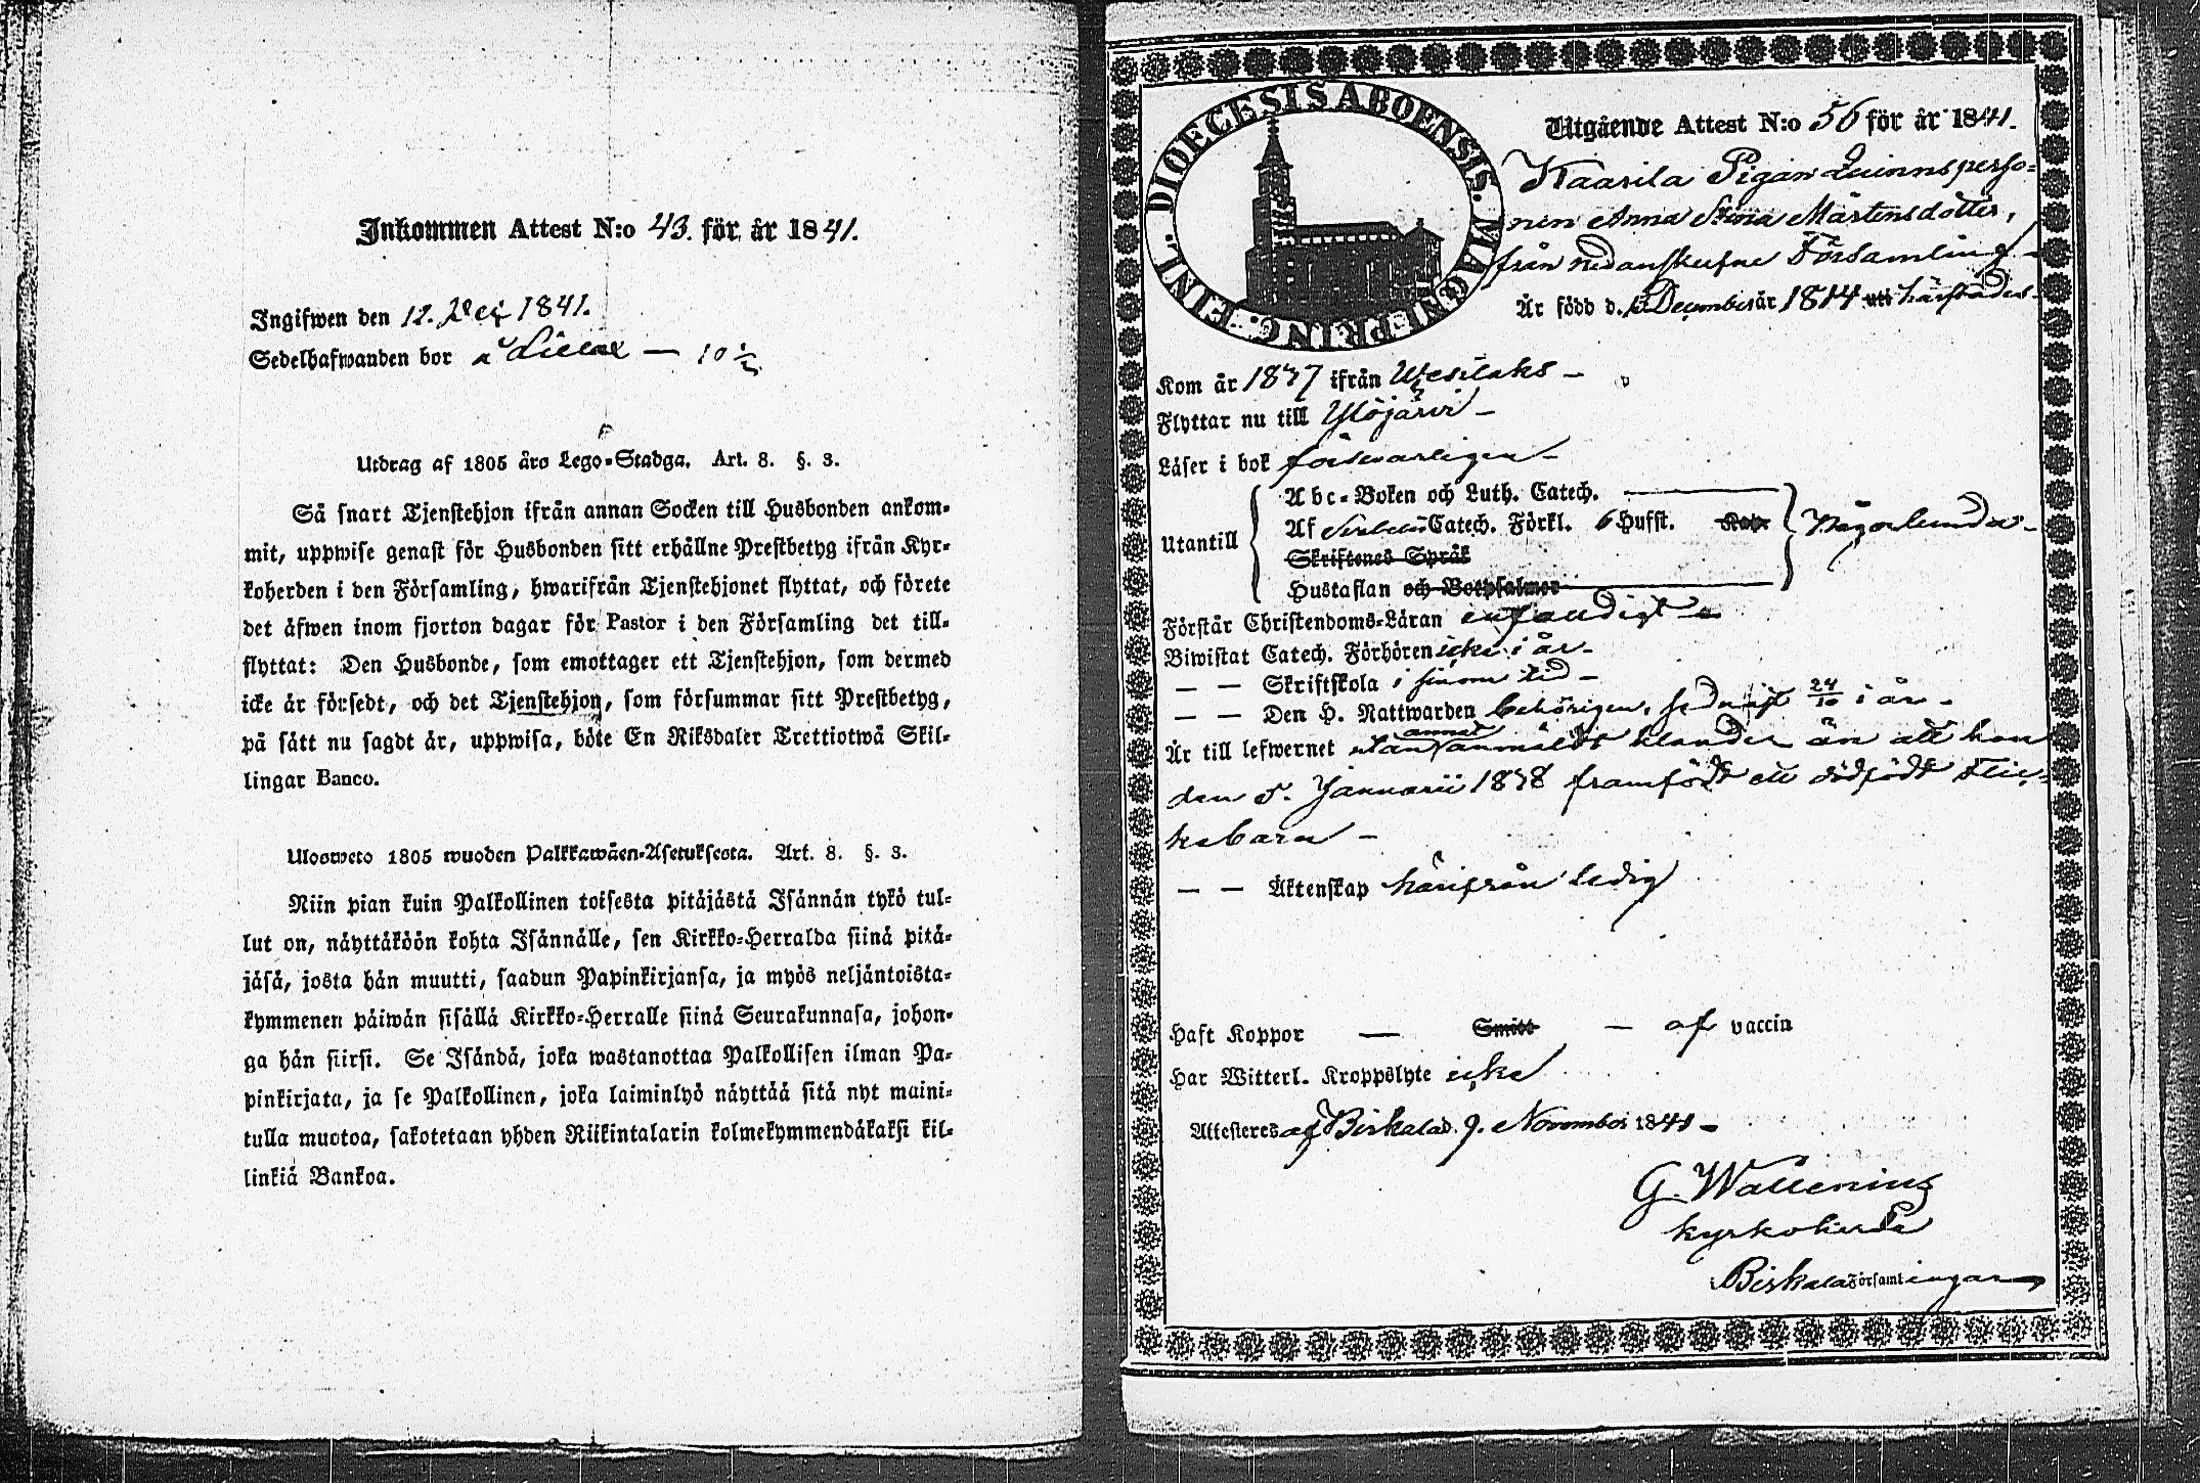 Inkommen Attest N:o 43. för år 1841.
Ingifwen den 12. 1841.
Sedelhafwanden bor å Lielax — 10 ½
Utdrag af 1805 års Lego-Stadga. Art. 8. §. 3.
Så snart Tjenstehjon ifrån annan Socken till Husbonden ankom-
mit, uppwise genast för Husbonden sitt erhållne Prestbetyg ifrån Kyr-
koherden i den Församling, hwarifrån Tjenstehjonet flyttat, och förete
det äfwen inom fjorton dagar för Pastor i den Församling det till-
flyttat: Den Husbonde, som emottager ett Tjenstehjon, som dermed
icke är försedt, och det Tjenstehjon, som försummar sitt Prestbetyg,
på sätt nu sagdt är, uppwisa, böte En Riksdaler Trettiotwå Skil-
lingar Banco.
Ulosweto 1805 wuoden Palkkawäen-Asetuksesta. Art. 8. §. 3.
Niin pian kuin Palkollinen toisesta pitäjästä Isännän tykö tul-
lut on, näyttäköön kohta Isännälle, sen Kirkko-Herralda siinä pitä-
jäsä, josta hän muutti, saadun Papinkirjansa, ja myös neljäntoista-
kymmenen päiwän sisällä Kirkko-Herralle siinä Seurakunnasa, johon-
ga hän siirsi. Se Isändä, joka wastanottaa Palkollisen ilman Pa-
pinkirjata, ja se Palkollinen, joka laiminlyö näyttää sitä nyt maini-
tulla muotoa, sakotetaan yhden Riikintalarin kolmekymmendäkaksi kil-
linkiä Bankoa.
DIOECESIS ABOENSIS. MAGNI PRINC. FINL.
Utgående Attest N:o 56 för år 1841.
Kaarila Pigan Quinnsperso-
nen Anna Stina Mårtensdotter,
från nedanskrefne Församling
Är född d. December år 1814 uti härstädes
Kom år 1837 ifrån Wesilaks —
Flyttar nu till Ylöjärvi —
Läser i bok försvarligen —
Abc-Boken och Luth. Catech.
Utantill Af Catech. Förkl. 6 Hufst. någorlunda —
Skriftenes Språk
Hustaflan och Botpsalmer
Förstår Christendoms-Läran enfaldigt —
Biwistat Catech. Förhören icke i år —
— — Skriftskola i sinom tid —
— — Den H. Nattwarden behörigen, sednast 24/10 i år —
Är till lefwernet utan annat anmäldt klander än att hon
den 5. Januarii 1838 framfödt ett dödfödt flic-
kebarn —
— — Äktenskap härifrån ledig
Haft Koppor — Smitt — af vaccin
Har Witterl. Kroppslyte icke
Attesteres af Birkala d. 9. November 1841 —
G. Wallenius
Kyrkoherde
i Birkala Församlingar